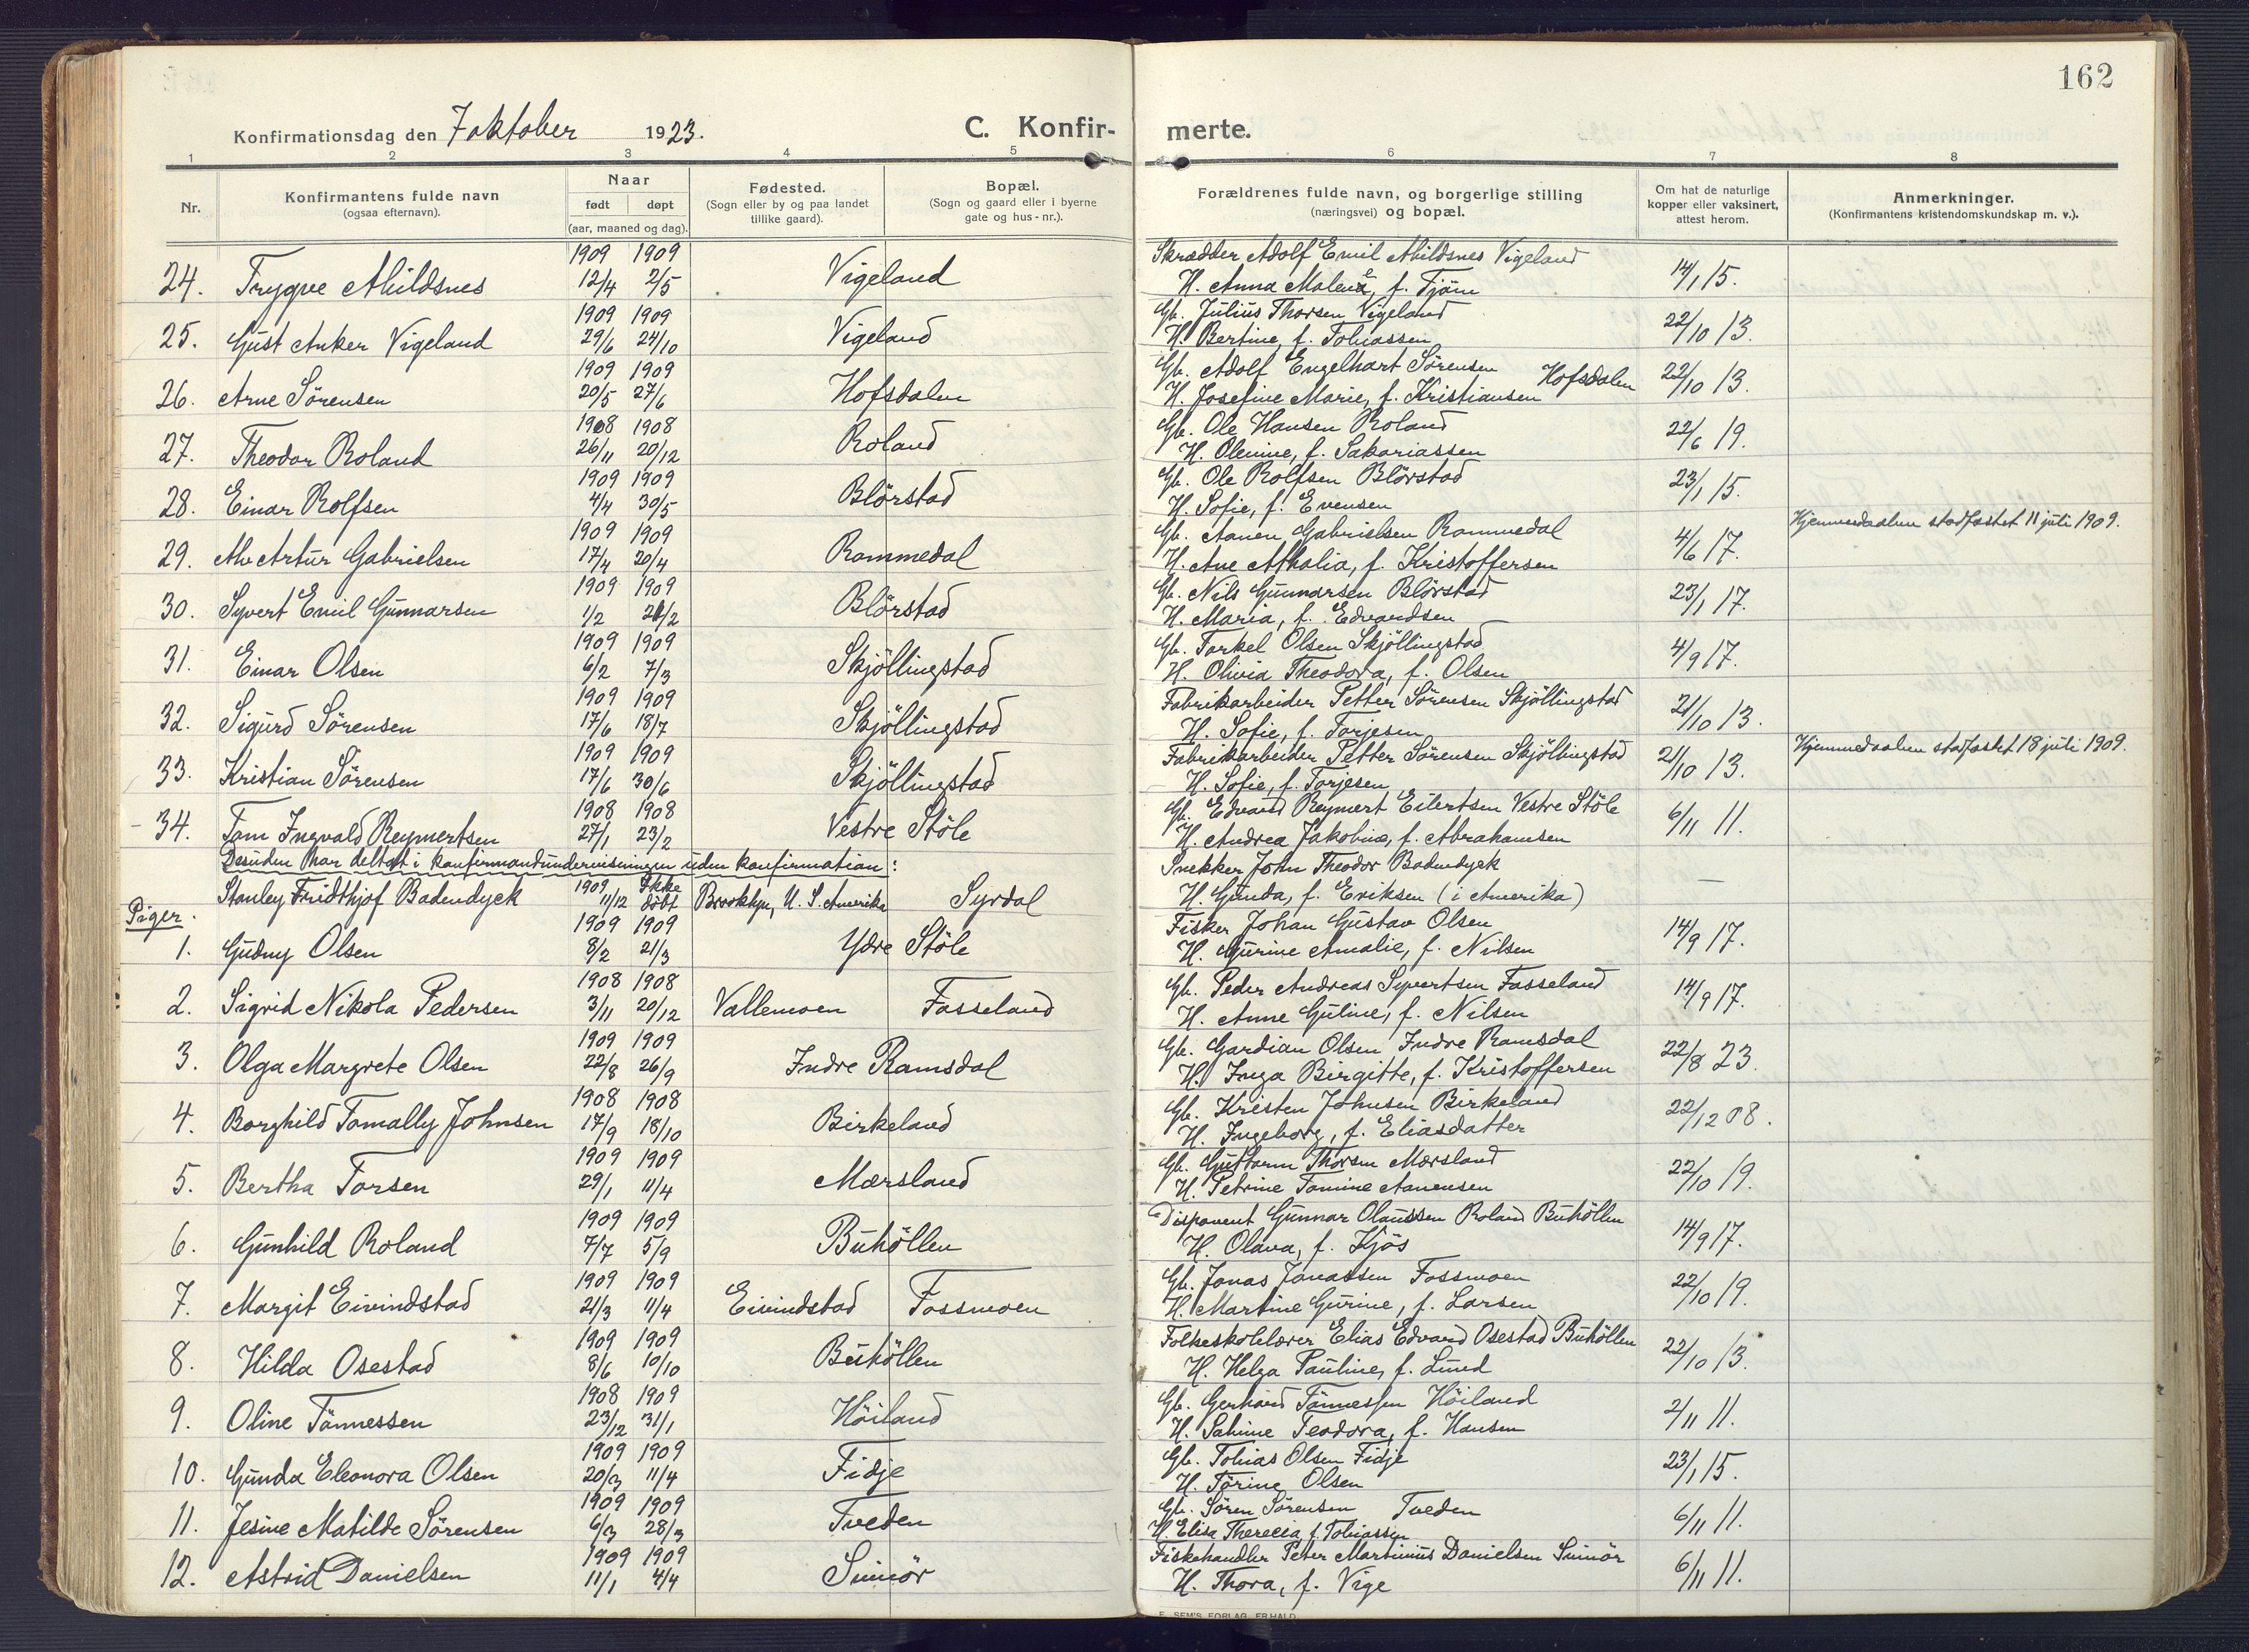 162
Konfirmationsdag den 7 oktober 1923.
C. Konfir-merte.
1 2 3 4 5 6 7 8
Nr.
Konfirmantens fulde navn
(ogsaa efternavn).
Naar
født døpt
(aar, maaned og dag).
Fødested.
(Sogn eller by og paa landet
tillike gaard).
Bopæl.
(Sogn og gaard eller i byerne
gate og hus-nr.).
Forældrenes fulde navn, og borgerlige stilling
(næringsvei) og bopæl.
Om hat de naturlige
kopper eller vaksinert,
attest herom.
Anmerkninger.
(Konfirmantens kristendomskundskap m. v.).
1909 1909 Skrædder Adolf Emil Abildsnes Vigeland
24. Trygve Abildsnes 12/4 2/5 Vigeland H. Anna Malene, f. Fjöm 14/1 15.
1909 1909 Gb. Julius Thorsen Vigeland
25. Gust Anker Vigeland 29/6 24/10 Vigeland H. Bertine, f. Tobiassen 22/10 13.
1909 1909 Gb. Adolf Engelhart Sörensen Hofsdalen
26. Arne Sörensen 20/5 27/6 Hofsdalen H. Josefine Marie, f. Kristiansen 22/10 13.
1908 1908 Gb. Ole Hansen Roland
27. Theodor Roland 26/11 20/12 Roland H. Olenine, f. Sakariassen 22/6 19.
1909 1909 Gb. Ole Rolfsen Blörstad
28. Einar Rolfsen 4/4 30/5 Blörstad H. Sofie, f. Evensen 23/1 15.
1909 1909 Gb. Aanen Gabrielsen Rommedal Hjemmedaaben stadfæstet 11 juli 1909.
29. Alv Artur Gabrielsen 17/4 20/4 Rommedal H. Ane Athalia, f. Kristoffersen 4/6 17.
1909 1909 Gb. Nils Gunnarsen Blörstad
30. Syvert Emil Gunnarsen 1/2 21/2 Blörstad H. Maria, f. Edvardsen 23/1 17.
1909 1909 Gb. Torkel Olsen Skjöllingstad
31. Einar Olsen 6/2 7/3 Skjöllingstad H. Olivia Theodora, f. Olsen 4/9 17.
1909 1909 Fabrikarbeider Petter Sörensen Skjöllingstad
32. Sigurd Sörensen 17/6 18/7 Skjöllingstad H. Sofie, f. Torjesen 21/10 13.
1909 1909 Fabrikarbeider Petter Sörensen Skjöllingstad Hjemmedaaben stadfæstet 18 juli 1909.
33. Kristian Sörensen 17/6 30/6 Skjöllingstad H. Sofie, f. Torjesen 21/10 13.
1908 1908 Gb. Edvard Reymert Eilertsen Vestre Stöle
34. Tom Ingvald Reymertsen 27/1 23/2 Vestre Stöle H. Andrea Jakobine, f. Abrahamsen 6/11 11.
Desuden har deltat i konfirmandundervisningen uden konfirmation: Snekker John Theodor Bodendyck
Stanley Fridthjof Badendyck 1909 11/12 Ikke döbt Brooklyn, U. S. Amerika Syrdal H. Gunda, f. Eriksen (i Amerika) —
Piger.
1909 1909 Fisker Johan Gustav Olsen
1. Gudny Olsen 8/2 21/3 Ydre Stöle H. Gurine Amalie, f. Nilsen 14/9 17.
1908 1908 Gb. Peder Andreas Syvertsen Fasseland
2. Sigrid Nikola Pedersen 3/11 20/12 Vallemoen Fasseland H. Anne Guline, f. Nilsen 14/9 17.
1909 1909 Gb. Gardian Olsen Indre Ramsdal
3. Olga Margrete Olsen 22/8 26/9 Indre Ramsdal H. Inga Birgitte, f. Kristoffersen 22/8 23.
1908 1908 Gb. Kristen Johnsen Birkeland
4. Borghild Tomally Johnsen 17/9 18/10 Birkeland H. Ingeborg, f. Eliasdatter 22/12 08.
1909 1909 Gb. Guttorm Thorsen Mærsland
5. Bertha Torsen 29/1 11/4 Mærsland H. Petrine Tomine Aanensen 22/10 19.
1909 1909 Disponent Gunnar Olaussen Roland Buhöllen
6. Gunhild Roland 7/7 5/9 Buhöllen H. Olava, f. Kjös 14/9 17.
1909 1909 Gb. Jonas Jonassen Fossmoen
7. Margit Eivindstad 21/3 11/4 Eivindstad Fossmoen H. Martine Gurine, f. Larsen 22/10 19.
1909 1909 Folkeskolelærer Elias Edvard Osestad Buhöllen
8. Hilda Osestad 8/6 10/10 Buhöllen H. Helga Pauline, f. Lund 22/10 13.
1908 1909 Gb. Gerhard Tönnessen Höiland
9. Oline Tönnessen 23/12 31/1 Höiland H. Sabine Teodora, f. Hansen 2/11 11.
1909 1909 Gb. Tobias Olsen Fidje
10. Gunda Eleonora Olsen 20/3 11/4 Fidje H. Torine Olsen 23/1 15.
1909 1909 Gb. Sören Sörensen Tveden
11. Jesine Matilde Sörensen 6/3 28/3 Tveden H. Elisa Therecia f. Tobiassen 6/11 11.
1909 1909 Fiskehandler Peter Martinius Danielsen Svinör
12. Astrid Danielsen 11/1 4/4 Svinör H. Thora, f. Vige 6/11 11.
E. SEM'S FORLAG, FR.HALD